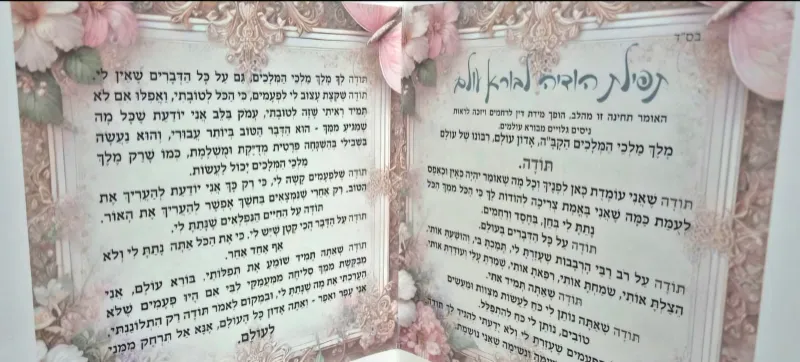 בס"ד
תפילת הודיה לבורא עולם
האומר תחינה זו מהלב, הופך מידת דין לרחמים ויזכה לראות
ניסים גלויים מבורא עולמים.
מֶלֶךְ מַלְכֵי הַמְּלָכִים הַקַּבָּ"ה, אֲדוֹן עוֹלָם, רִבּוֹנוֹ שֶׁל עוֹלָם
תּוֹדָה.
תּוֹדָה שֶׁאֲנִי עוֹמֶדֶת כָּאן לְפָנֶיךָ וְכָל מַה שֶּׁאוֹמַר יִהְיֶה כְּאַיִן וּכְאֶפֶס
לְעֻמַּת כַּמָּה שֶׁאֲנִי בֶּאֱמֶת צְרִיכָה לְהוֹדוֹת לְךָ כִּי הַכֹּל מִמְּךָ הַכֹּל
נָתַתָּ לִי בְּחֵן, בְּחֶסֶד וְרַחֲמִים.
תּוֹדָה עַל כָּל הַדְּבָרִים בָּעוֹלָם.
תּוֹדָה עַל רֹב רִבֵּי הָרְבָבוֹת שֶׁעָזַרְתָּ לִי, תָּמַכְתָּ בִּי, וְהוֹשַׁעְתָּ אוֹתִי,
הִצַּלְתָּ אוֹתִי, שִׂמַּחְתָּ אוֹתִי, רִפֵּאתָ אוֹתִי, שָׁמַרְתָּ עָלַי וְעוֹדַדְתָּ אוֹתִי.
תּוֹדָה שֶׁאַתָּה תָּמִיד אִתִּי.
תּוֹדָה שֶׁאַתָּה נוֹתֵן לִי כֹּחַ לַעֲשׂוֹת מִצְווֹת וּמַעֲשִׂים
טוֹבִים, נוֹתֵן לִי כֹּחַ לְהִתְפַּלֵּל.
פְּעָמִים שֶׁעָזַרְתָּ לִי וְלֹא יָדַעְתִּי לְהַגִּיד לְךָ תּוֹדָה.
וּנְשִׁימָה שֶׁאֲנִי נוֹשֶׁמֶת.
תּוֹדָה לְךָ מֶלֶךְ מַלְכֵי הַמְּלָכִים, גַּם עַל כָּל הַדְּבָרִים שֶׁאֵין לִי.
תּוֹדָה שֶׁקְּצָת עָצוּב לִי לִפְעָמִים, כִּי הַכֹּל לְטוֹבָתִי, וַאֲפִלּוּ אִם לֹא
תָּמִיד רָאִיתִי שֶׁזֶּה לְטוֹבָתִי, עָמֹק בַּלֵּב אֲנִי יוֹדַעַת שֶׁכָּל מַה
שֶּׁמַּגִּיעַ מִמְּךָ - הוּא הַדָּבָר הַטּוֹב בְּיוֹתֵר עֲבוּרִי, וְהוּא נַעֲשָׂה
בִּשְׁבִילִי בְּהַשְׁגָּחָה פְּרָטִית מְדֻיֶּקֶת וּמֻשְׁלֶמֶת, כְּמוֹ שֶׁרַק מֶלֶךְ
מַלְכֵי הַמְּלָכִים יָכוֹל לַעֲשׂוֹת.
תּוֹדָה שֶׁלִּפְעָמִים קָשֶׁה לִי, כִּי רַק כָּךְ אֲנִי יוֹדַעַת לְהַעֲרִיךְ אֶת
הַטּוֹב. רַק אַחֲרֵי שֶׁנִּמְצָאִים בַּחֹשֶׁךְ אֶפְשָׁר לְהַעֲרִיךְ אֶת הָאוֹר.
תּוֹדָה עַל הַחַיִּים הַנִּפְלָאִים שֶׁנָּתַתָּ לִי.
תּוֹדָה עַל הַדָּבָר הֲכִי קָטָן שֶׁיֵּשׁ לִי, כִּי אֶת הַכֹּל אַתָּה נָתַתָּ לִי וְלֹא
אַף אֶחָד אַחֵר.
תּוֹדָה שֶׁאַתָּה תָּמִיד שׁוֹמֵעַ אֶת תְּפִלּוֹתַי. בּוֹרֵא עוֹלָם, אֲנִי
מְבַקֶּשֶׁת מִמְּךָ סְלִיחָה מִמַּעֲמַקֵּי לִבִּי אִם הָיוּ פְּעָמִים שֶׁלֹּא
הֶעֱרַכְתִּי אֶת מַה שֶּׁנָּתַתָּ לִי, וּבִמְקוֹם לֹאמַר תּוֹדָה רַק הִתְלוֹנַנְתִּי,
אֲנִי עָפָר וָאֵפֶר - וְאַתָּה אֲדוֹן כָּל הָעוֹלָם, אָנָּא אַל תִּרְחַק מִמֶּנִּי
לְעוֹלָם.